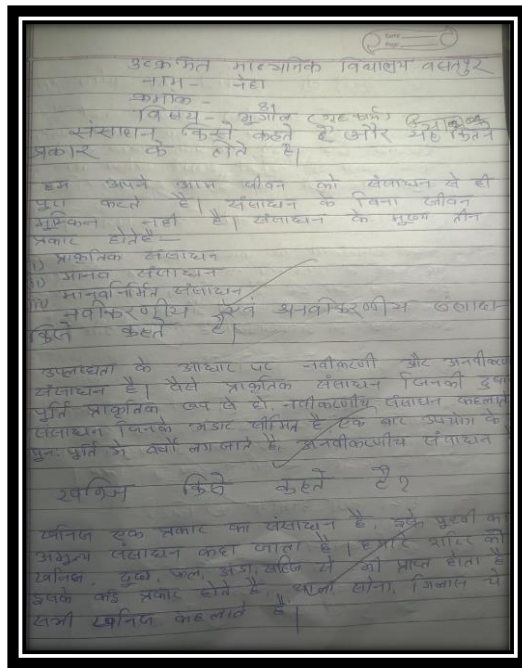 उत्क्रमित माध्यमिक विद्यालय वसतपुर
नाम- नेहा
क्रमांक- 31
विषय- भूगोल (गृहकार्य)
संसाधन किसे कहते है और यह कितने
प्रकार के होते है।
हम अपने आम जीवन को संसाधन से ही
पूरा करते है। संसाधन के बिना जीवन
मुमकिन नहीं है। संसाधन के मुख्य तीन
प्रकार होते है-
(i) प्राकृतिक संसाधन
(ii) मानव संसाधन
(iii) मानवनिर्मित संसाधन
नवीकरणीय एवं अनवीकरणीय संसाधन
किसे कहते है।
उपलब्धता के आधार पर नवीकरणी और अनवीकरण
संसाधन है। वैसे प्राकृतिक संसाधन जिनकी
पूर्ति प्राकृतिक रूप से हो, नवीकरणीय संसाधन कहलाते
संसाधन जिनके भंडार सीमित है एक बार उपयोग के
पुनः पूर्ति में वर्षो लग जाते है, अनवीकरणीय संसाधन
खनिज किसे कहते है?
खनिज एक प्रकार का संसाधन है, इसे पृथ्वी का
अमुल्य संसाधन कहा जाता है। हमारे शरिर को
खनिज, दुध, फल, अंडा, से भी प्राप्त होता है
इसके कई प्रकार होते है, सोना, ये
सभी खनिज कहलाते है।